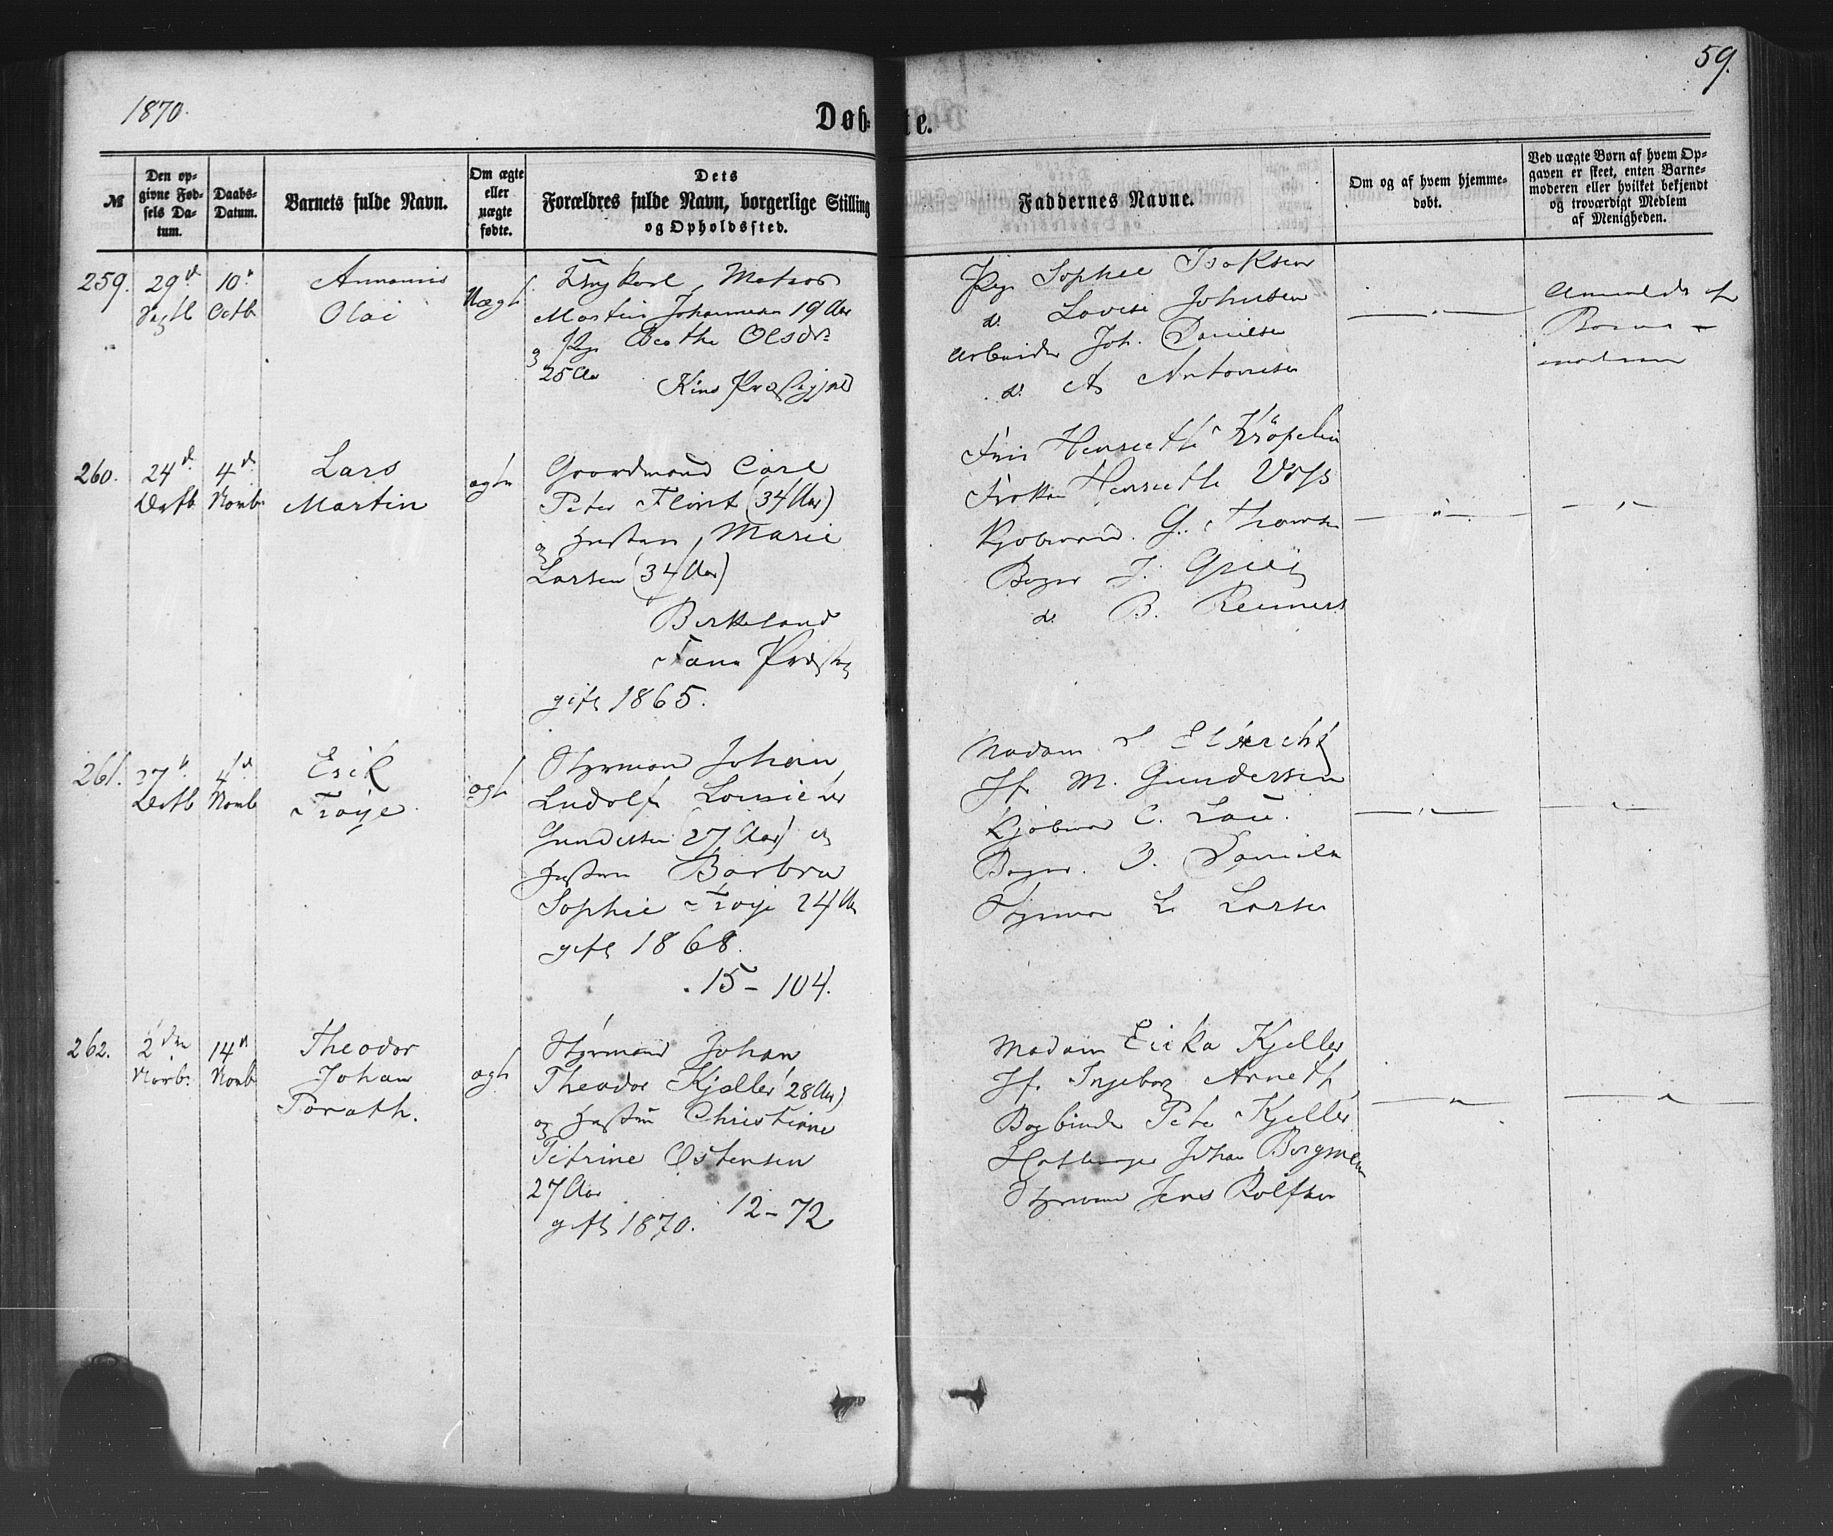 1870.
59.
Døbte.
№
Den opgivne Fødsels Datum.
Daabs-Datum.
Barnets fulde Navn.
Om ægte eller uægte fødte.
Dets Forældres fulde Navn, borgerlige Stilling og Opholdssted.
Faddernes Navne.
Om og af hvem hjemmedøbt.
Ved uægte Børn af hvem Opgaven er skeet, enten Barnemoderen eller hvilket bekjendt og troværdigt Medlem af Menigheden.
259.
29d
10d
Octb
Olai
Uægt
Ungkarl, Matros
Martin Johannesen 19 Aar
og Pige Berthe Olsdr
25 Aar
Pige Sophie Isaksen
do Lovise Johnsen
Arbeider Joh. Danielsen
do A Antonisen
Anmeldt af
Barne-
moderen
260.
24d
Octb
4d
Novb
Lars
Martin
ægte
Gaardmand Carl
Peter Flint (34 Aar)
og Hustru Marie
Larsen (34 Aar)
Birkeland
Fane Præstg
gift 1865.
Henriette
Frøken Henriette Voss
Kjøbmand G. Thomsen
Bager J. Grieg
do B. Reimers
261.
27d
Octb
4d
Novb
Erik
Troye
ægt
Styrmand Johan
Ludolf
Gundersen (27 Aar) og
Hustru Barbra
Sophie Troye 24 Aar
gift 1868.
15 - 104.
Madam
Jf. M. Gundersen
Kjøbmand C. Lau.
Bager. J. Daniels
Styrman L. Larsen
262.
2den
Novb.
14d
Novb
Theodor
Johan
Porath.
ægt
Styrmand Johan
Theodor Kjeller 28 Aar)
og Hustru Christiane
Petrine Østensen
27 Aar
gift 1870. 12 - 72
Madam Erika Kjeller
Jf. Ingeborg Arneth
Bogbinder Peter Kjeller
Johan Borgmann
Styrmand Jens Rolfsen